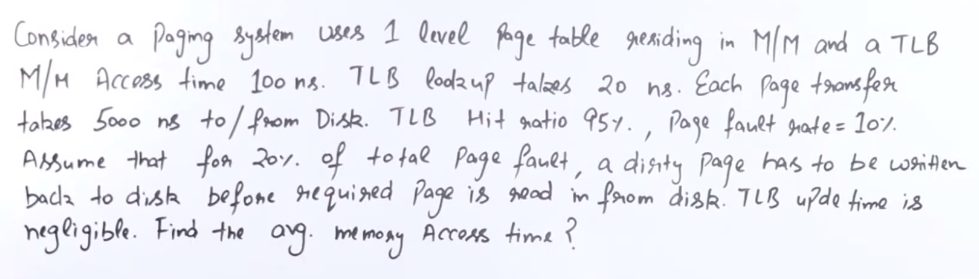 Consider a Paging system uses 1 level Page table residing in M/M and a TLB
M/M Access time 100 ns. TLB lookup takes 20 ns. Each Page transfer
takes 5000 ns to/from Disk. TLB Hit ratio 95%., Page fault rate = 10%.
Assume that for 20%. of total Page fault, a dirty Page has to be written
back to disk before required Page is read in from disk. TLB up?de time is
negligible. Find the avg. memory Access time?